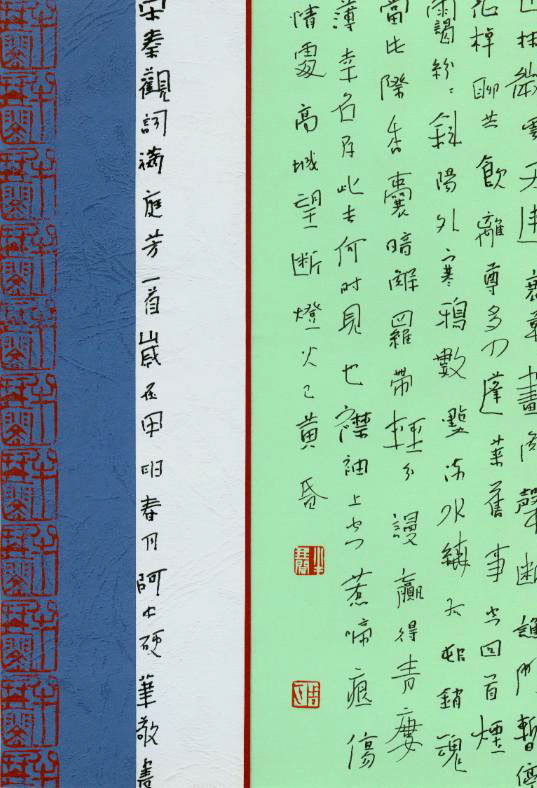 抹微雲天連衰草畫角聲断譙門暫停
征棹聊共飲離尊多少蓬萊舊事空回首煙
靄紛〻斜陽外寒鴉數點流水繞孤村銷魂
當此際香囊暗解羅帶輕分謾贏得青樓
薄幸名存此去何時見也襟袖上空惹啼痕傷
情處高城望断燈火已黃昏
宋秦觀詞滿庭芳一首歲在甲申春月阿中硬筆敬書